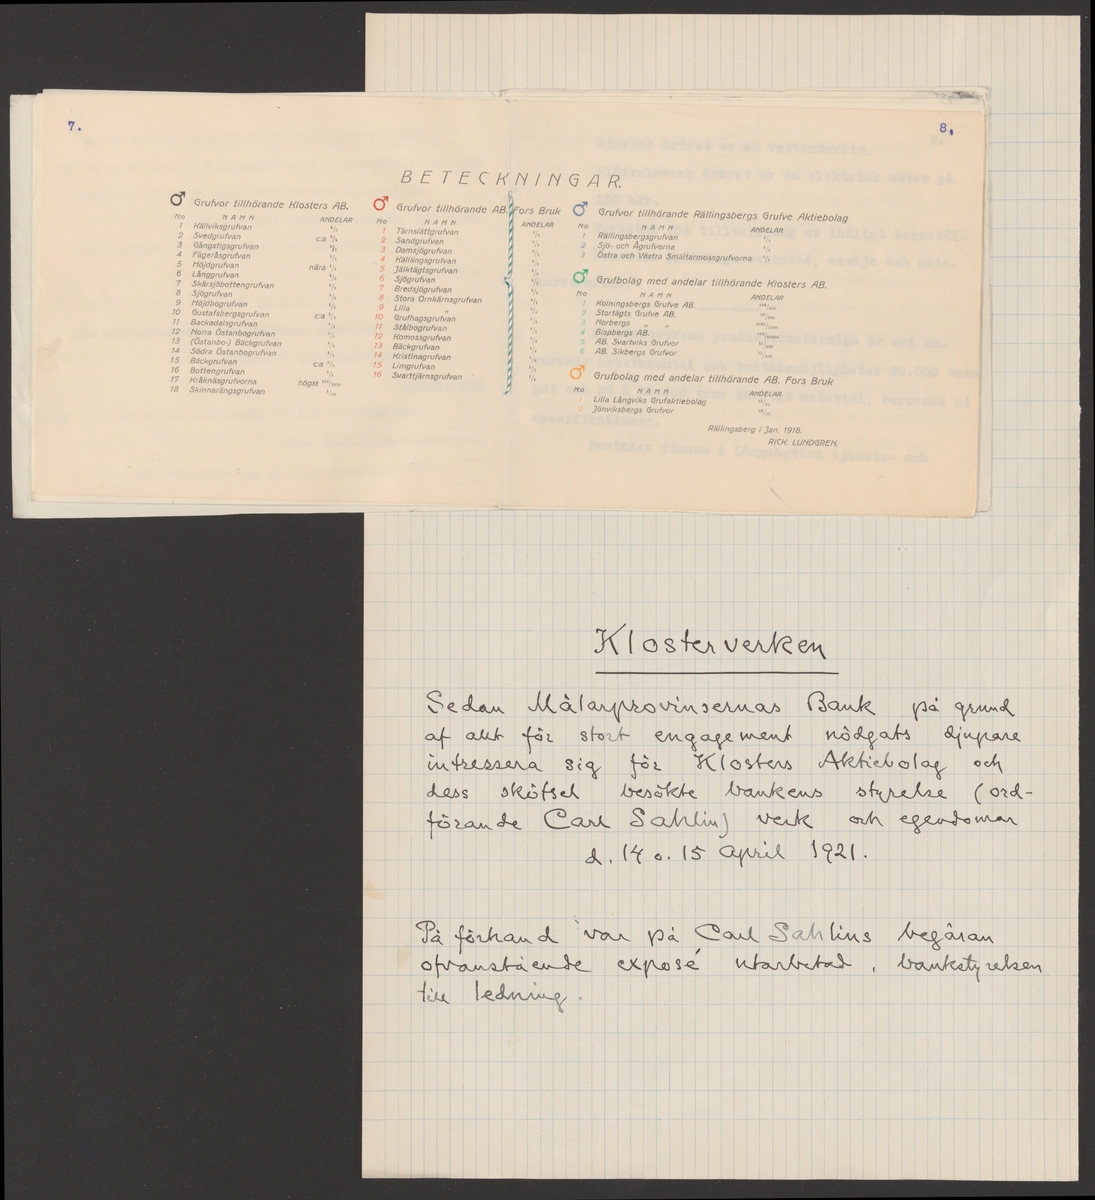 7.
8.
BETECKNINGAR.
Grufvor tillhörande Klosters AB.
No NAMN ANDELAR
1 Källviksgrufvan
2 Svedgrufvan c:a
3 Gångstigsgrufvan
4 Fageråsgrufvan
5 Höjdgrufvan nära
6 Långgrufvan
7 Skärsjöbottengrufvan
8 Sjögrufvan
9 Höjdbogrufvan
10 Gustafsbergsgrufvan c:a
11 Backadalsgrufvan
12 Norra Östanbogrufvan
13 (Östanbo-) Bäckgrufvan
14 Södra Östanbogrufvan
15 Bäckgrufvan c:a
16 Bottengrufvan
17 Kråknäsgrufvorna högst
18 Skinnarängsgrufvan
Grufvor tillhörande AB. Fors Bruk
No NAMN ANDELAR
1 Tärnslättgrufvan
2 Sandgrufvan
3 Damsjögrufvan
4 Källängsgrufvan
5 Jälktägtsgrufvan
6 Sjögrufvan
7 Bredsjögrufvan
8 Stora Örnkärnsgrufvan
9 Lilla "
10 Grufhagsgrufvan
11 Stålbogrufvan
12 Komossgrufvan
13 Bäckgrufvan
14 Kristinagrufvan
15 Limgrufvan
16 Svarttjärnsgrufvan
Grufvor tillhörande Rällingsbergs Grufve Aktiebolag
No NAMN ANDELAR
1 Rällingsbergsgrufvan
2 Sjö- och Ågrufvorna
3 Östra och Västra Smältarmossgrufvorna
Grufbolag med andelar tillhörande Klosters AB.
No NAMN ANDELAR
1 Kolningsbergs Grufve AB.
2 Stortägts Grufve AB.
3 Norbergs " "
4 Bispbergs AB.
5 AB. Svartviks Grufvor
6 AB. Sikbergs Grufvor
Grufbolag med andelar tillhörande AB. Fors Bruk
No NAMN ANDELAR
1 Lilla Långviks Grufaktiebolag
2 Jönviksbergs Grufvor
Rällingsberg i Jan. 1918.
RICH. LUNDGREN.
Klosterverken
Sedan Mälarprovinsernas Bank på grund
af allt för stort engagement nödgats djupare
intressera sig för Klosters Aktiebolag och
dess skötsel besökte bankens styrelse (ord-
förande Carl Sahlin) verk och egendomar
d. 14 o. 15 april 1921.
På förhand var på Carl Sahlins begäran
ofvanstående exposé utarbetad, bankstyrelsen
till ledning.